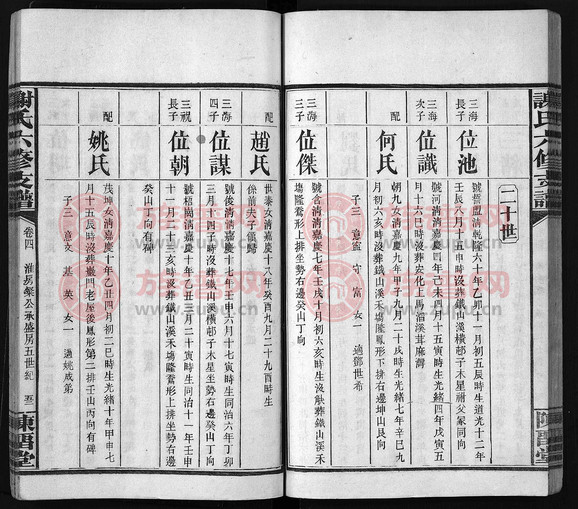 謝氏六修支譜
陳留堂
二十世
三海
長子
位池
號誓盟清乾隆六十年乙卯十一月初五辰時生道光十二年
壬辰八月十五申時沒葬鐵山溪橫邨子木星祔父冢同向
三海
次子
位識
號河清清嘉慶四年己未四月十五寅時生光緒四年戊寅五
月十六巳時沒葬安化上馬淄溪茸麻灣
配
何氏
朝九女清嘉慶九年甲子九月二十戌時生光緒七年辛巳九
月初六亥時沒葬鐵山溪禾塲隆鳳形下排右邊坤山艮向
子三 意寬 守 富 女一 適鄧世希
三海
三子
位傑
號含清清嘉慶七年壬戌十月初六亥時生沒缺葬鐵山溪禾
塲隆鴛形上排坐勢右邊癸山丁向
配
趙氏
世泰女清嘉慶十八年癸酉九月二十九酉時生
係前夫子領歸
三海
四子
位謀
號後清清嘉慶十七年壬申六月十七寅時生同治六年丁卯
三月十四子時沒葬鐵山溪橫邨子木星坐勢右邊癸山丁向
三祝
長子
位朝
號梧廣清嘉慶十年乙丑三月二十寅時生同治十一年壬申
十一月二十三亥時沒葬鐵山溪禾塲隆鴛形上排坐勢右邊
癸山丁向有碑
配
姚氏
茂坤女清嘉慶十年乙丑四月初二巳時生光緒十年甲申七
月十五辰時沒葬巖門老屋後鳳形第二排壬山丙向有碑
子三 意文 基 英 女一 適姚咸第
謝氏六修支譜
卷四
淮房榮公承盛房五世紀
陳留堂